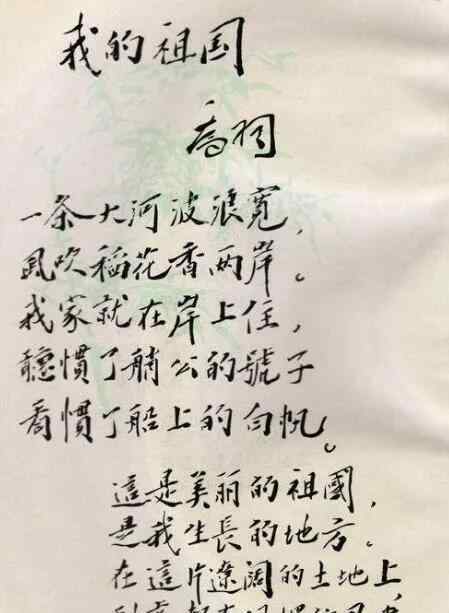 我的祖国
喬羽
一条大河波浪寬，
風吹稻花香两岸。
我家就在岸上住，
聽慣了艄公的號子
看慣了船上的白帆。
這是美丽的祖國，
是我生長的地方。
在這片遼阔的土地上，